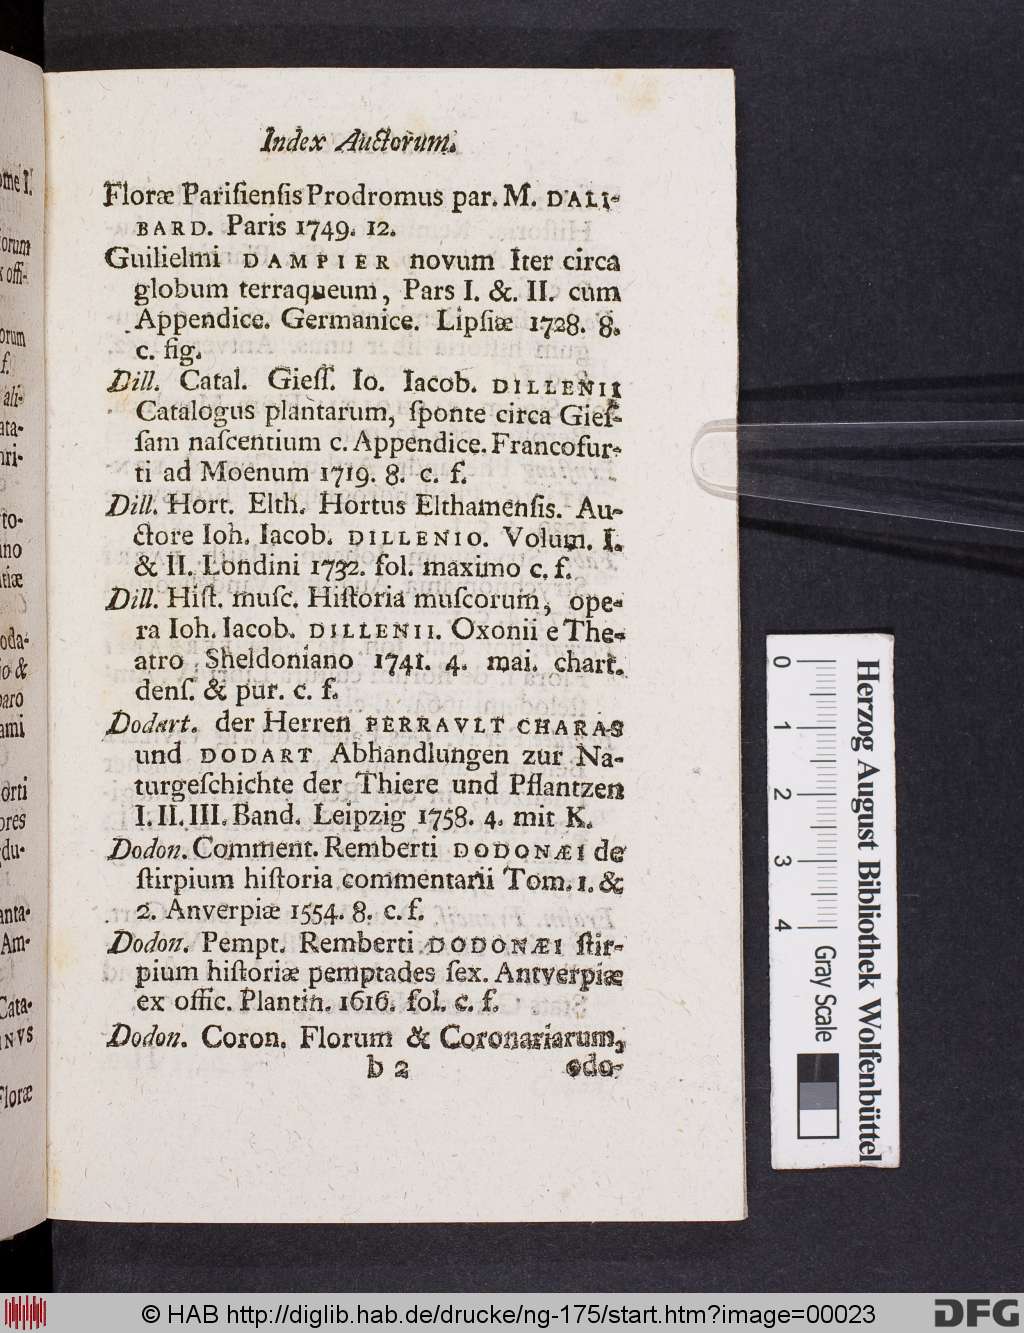 Index Auctorum.
Floræ Pariſienſis Prodromus par. M. DALI-
BARD. Paris 1749. 12.
Guilielmi DAMPIER novum Iter circa
globum terraqueum, Pars I. &. II. cum
Appendice. Germanice. Lipſiæ 1728. 8.
c. fig.
Dill. Catal. Gieſſ. Io. Iacob. DILLENII
Catalogus plantarum, ſponte circa Gieſ-
ſam naſcentium c. Appendice. Francofur-
ti ad Moenum 1719. 8. c. f.
Dill. Hort. Elth. Hortus Elthamenſis. Au-
ctore Ioh. Iacob. DILLENIO. Volum. I.
& II. Londini 1732. fol. maximo c. f.
Dill. Hiſt. muſc. Hiſtoria muſcorum, ope-
ra Ioh. Iacob. DILLENII. Oxonii e The-
atro Sheldoniano 1741. 4. mai. chart.
denſ. & pur. c. f.
Dodart. der Herren PERRAVLT CHARAS
und DODART Abhandlungen zur Na-
turgeſchichte der Thiere und Pflantzen
I. II. III. Band. Leipzig 1758. 4. mit K.
Dodon. Comment. Remberti DODONÆI de
ſtirpium hiſtoria commentarii Tom. 1. &
2. Anverpiæ 1554. 8. c. f.
Dodon. Pempt. Remberti DODONÆI ſtir-
pium hiſtoriæ pemptades ſex. Antverpiæ
ex offic. Plantin. 1616. fol. c. f.
Dodon. Coron. Florum & Coronariarum,
b 2 odo-
0 1 2 3 4 Gray Scale
Herzog August Bibliothek Wolfenbüttel
© HAB http://diglib.hab.de/drucke/ng-175/start.htm?image=00023
DFG